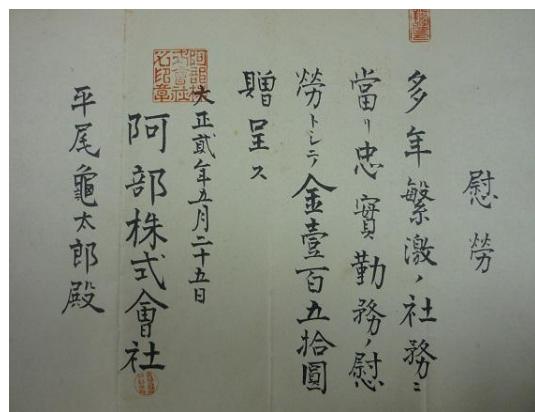 慰勞
多年繁激ノ社務ニ
當リ忠實勤務ノ慰
勞トシテ金壹百五拾圓
贈呈ス
大正貳年五月二十五日
阿部株式會社
平尾龜太郎殿